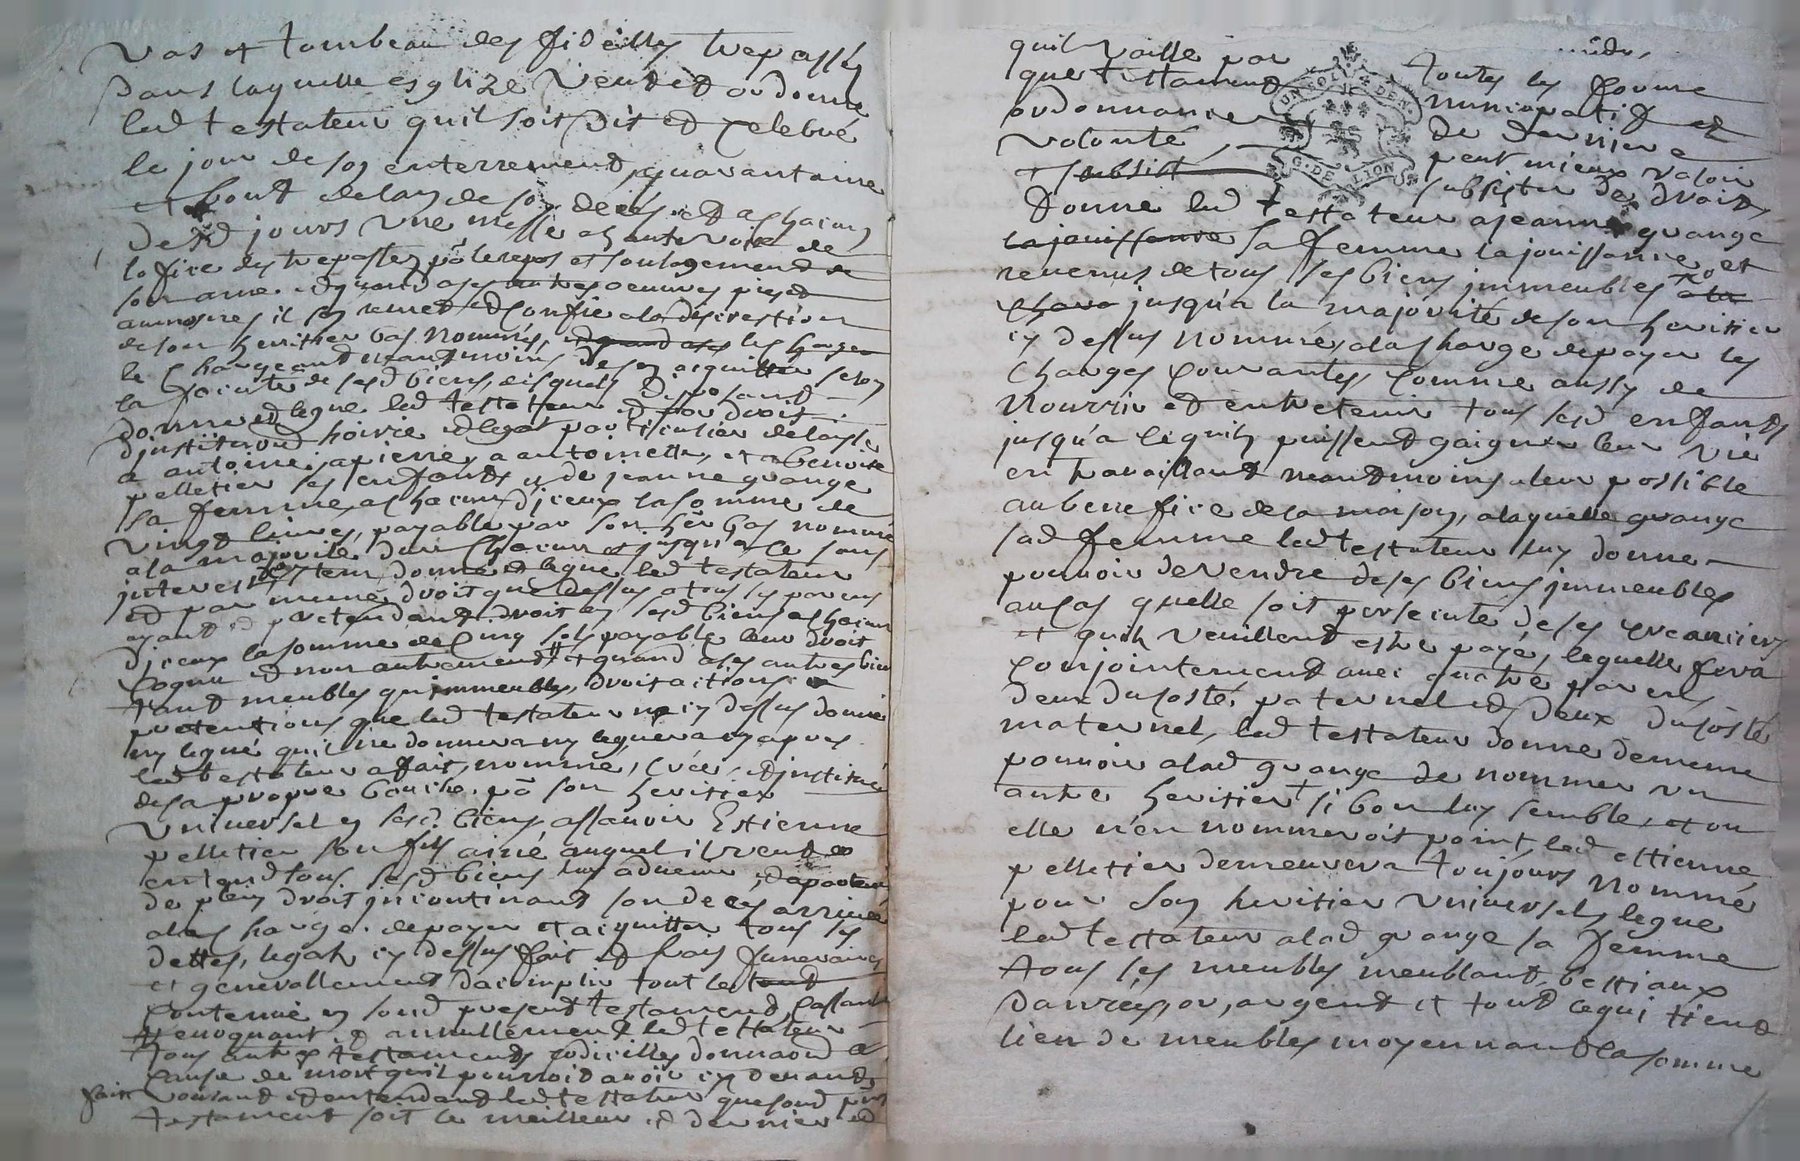 vas et tombeau des fideilles trepassés
Dans laquelle esglize veut et ordonne
led testateur quil soit dit et celebré
le jour de son enterrement, quarantaine
et bout delan de son decés et a chacung
desd jours une messe a haute voix de
lofice des trepassez po le repos et soulagement de
son ame. et quand a ses autres oeuvres pies et
aumosnes il sen remet et confie a la discrestion
de son heritier bas nommés, et quand a ses les charges
le chargeant neantmoins de sen aiquitter selon
la portée de sesd biens, disquels disposant
donne et legue led testateur et par droit
dinstitution hoirie et legat particulier delaisse
a antoine, a pierre, a antoinette, et a benoite
pelletier ses enfants et de jeanne grange
sa femme a chacun diceux la somme de
vingt livres, payable par son her bas nommé
a la majorité dun chacun et jusqua ce sans
interest, Item donne et legue led testateur
et par meme droit que dessus a tous ses parens
ayant et pretendant droit en sesd biens a chacun
diceux la somme de cinq sols payable leur droit
cognu et non autrement et quand a ses autres biens
tant meubles quimmeubles, droits actions et
pretentions que led testateur na cy dessus donné
ny legué quil ne donnera ny leguera cy apres
led testateur a fait, nommé, créé, et institué
de sa propre bouche, po son heritier
universel en sesd biens assavoir Estienne
pelletier son fils ainé auquel il veut et
entend tous sesd biens luy advenir et apartenir
de plein droit incontinant son deces arrivé
a la charge de payer et aiquitter tous ses
dettes, legats cy dessus fait et frais funeraires
et generallement dacomplir tout le tout
contenue en sond present testament, cassant
revoquant et annullement led testateur
tous autres testaments codicilles donnaon a
cause de mort quil pourroit avoir cy devant
fait voulant et entendant led testateur que sond pnt
testament soit le meilleur et dernier et
quil vaille par toutes les forme
que testament nuncupatif et
ordonnance de derniere
volonté peut mieux valoir
et subsist subsister de droit
Donne led testateur a jeanne grange
la jouissance sa femme la jouissance et
revenus de tous ses biens immeubles a la
charg jusqua la majorité de son heritier
cy dessus nommé, a la charge de payer les
charges courantes, comme aussy de
nourrir et entretenir tous sesd enfants
jusqua ce quils puissent gaigner leur vie
en travaillant neantmoins a leur possible
au benefice de la maison, a laquelle grange
sad femme led testateur luy donne
pouvoir de vendre de ses biens immeubles
au cas quelle soit perseiute de ses creanciers
et quils veuillent estre payé, lequelle fera
conjointement avec quatre parens,
deux du costé paternel et deux du costé
maternel, led testateur donne de meme
pouvoir a lad grange de nommer un
autre heritier si bon luy semble, et ou
elle n'en nommeroit point led ettienne
pelletier demeurera toujours nommé
pour son heritier universel, legue
led testateur a lad grange sa femme
tous ses meubles meublant, bestiaux
danrées, or, argent et tout ce qui tient
lieu de meubles moyennant la somme